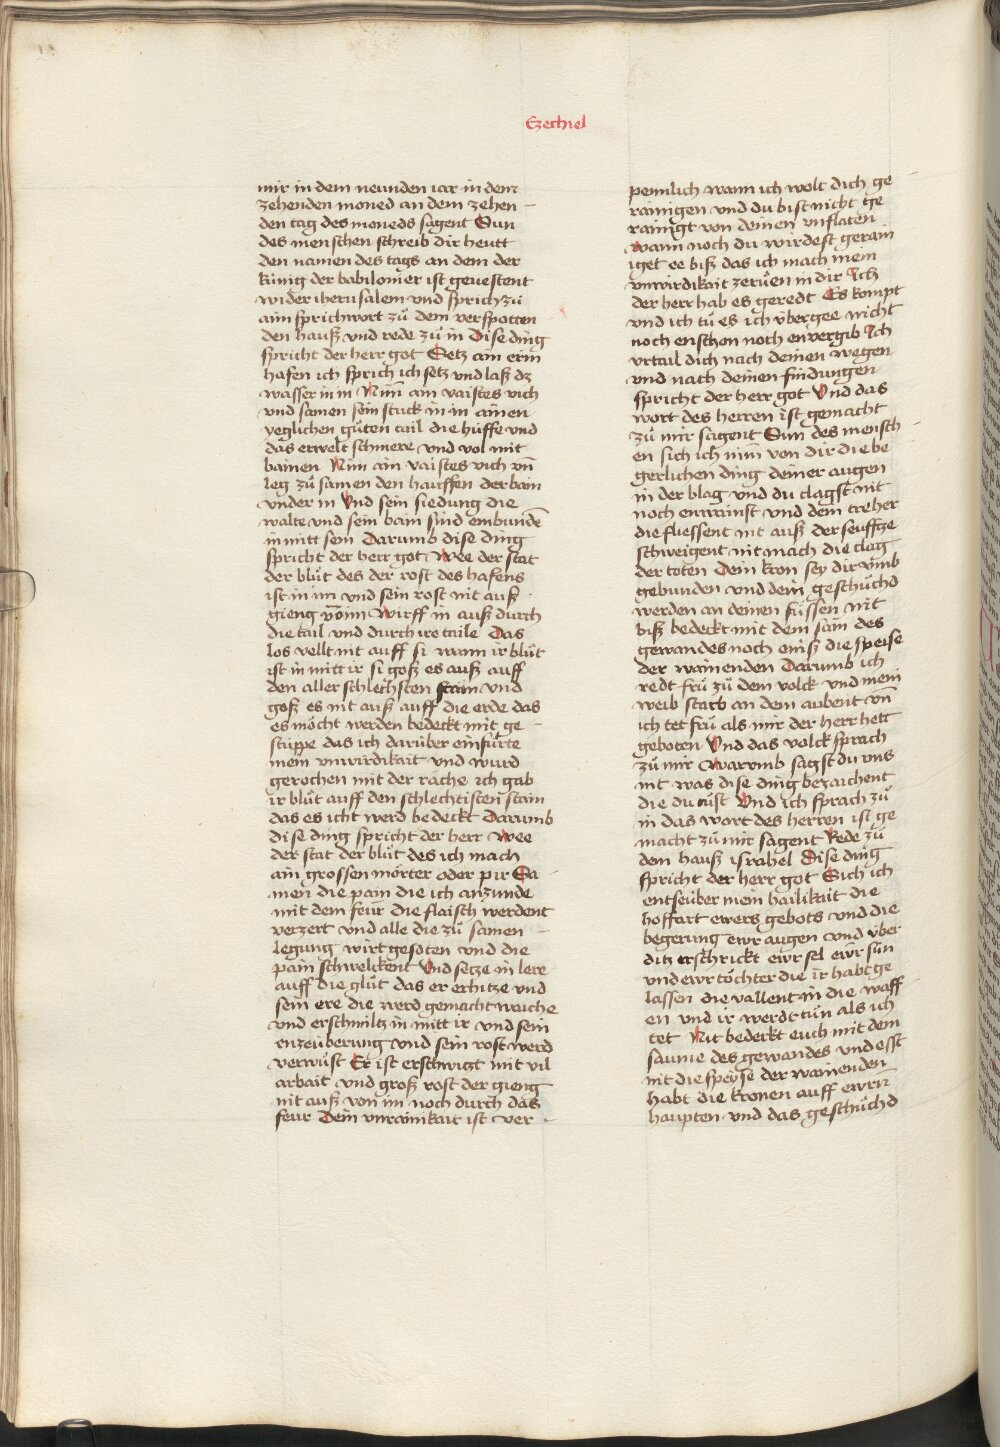 Ezechiel
mir in dem neunden iar in dem
zehenden moned an dem zehen
den tag des moneds sagent Sun
des menschen schreib dir heutt
den namen des tags an dem der
künig der babilonier ist geuestent
wider iherusalem vnd sprich zů
aim sprichwort zů dem verspotten
den hauß vnd rede zů in Dise ding
spricht der herr got Setz ain erin
hafen ich sprich ich setz vnd laß dz
wasser in in Nim̄ ain vaistes vich
vnd samen sein stuck in in ainen
yeglichen gůten tail die hüffe vnd
das erwelt schmere vnd vol mit
bainen Nim ain vaistes vich vn̄
leg zů samen den hauffen der bain
vnder in Vnd sein siedung die
walte vnd sein bain sind embunde
in mitt sein Darumb dise ding
spricht der herr got Wee der stat
der blůt des der rost des hafens
ist in im vnd sein rost nit auß
gieng võ im Wirff in auß durch
die tail vnd durch ire taile Das
los vellt nit auff si wann ir blůt
ist in mitt ir si goß es auß auff
den aller schlechsten stain vnd
goß es nit auß auff die erde das
es möcht werden bedeckt mit ge
stüppe das ich darüber einfürte
mein vnwirdikait vnd wurd
gerochen mit der rache ich gab
ir blůt auff den schlechtisten stain
das es icht werd bedeckt Darumb
dise ding spricht der herr Wee
der stat der blůt des ich mach
ain grossen mörter oder pir Sa
men die pain die ich anzunde
mit dem feur die flaisch werdent
verzert vnd alle die zů samen
legung wirt gesoten vnd die
pain schwelckent Vnd setze in lere
auff die glůt das er erhitze vnd
sein ere die werd gemacht waiche
vnd erschmiltz in mitt ir vnd sein
vnzeuberung vnd sein rost werd
verwůst Er ist erschwitzt mit vil
arbait vnd groß rost der gieng
nit auß von im noch durch das
feur Dein vnrainikait ist ver
peinlich wann ich wolt dich ge
rainigen vnd du bist nicht ge
rainigt von deinen vnflaten
Wann noch du wirdest gerain
iget ee biß das ich mach mein
vnwirdikait zerůen in dir Ich
der herr hab es geredt Es kompt
vnd ich tů es ich übergee nicht
noch enschon noch envergib Ich
vrtail dich nach deinen wegen
vnd nach deinen findungen
spricht der herr got Vnd das
wort des herren ist gemacht
zů mir sagent Sun des mensch
en sich ich nim von dir die be
gerlichen ding deiner augen
in der blag vnd du clagst nit
noch enwainst vnd dein treher
die fliessent nit auß der seufftze
schweigent nit mach die clag
der toten Dein kron sey dir vmb
gebunden vnd dein geschüchd
werden an deinen füssen nit
biß bedeckt mit dem sam des
gewandes noch eniß die speise
der wainenden Darumb ich
redt frů zů dem volck vnd mein
weib starb an dem aubent vn̄
ich tet frů als mir der herr hett
geboten Vnd das volck sprach
zů mir Warumb sagst du vns
nit was dise ding bezaichent
die du tůst Vnd ich sprach zů
in das wort des herren ist ge
macht zů mir sagent Rede zů
dem hauß israhel Dise ding
spricht der herr got Sich ich
entseüber mein hailikait die
hoffart ewers gebots vnd die
begerung ewr augen vnd über
ditz erschrickt ewr sel ewr sün
vnd ewr töchter die ir habt ge
lassen die vallent in die waff
en vnd ir werdt tůn als ich
tet Nit bedeckt euch mit dem
saume des gewandes vnd esst
nit die speyse der wainenden
habt die kronen auff ewrn
haupten vnd das geschüchd